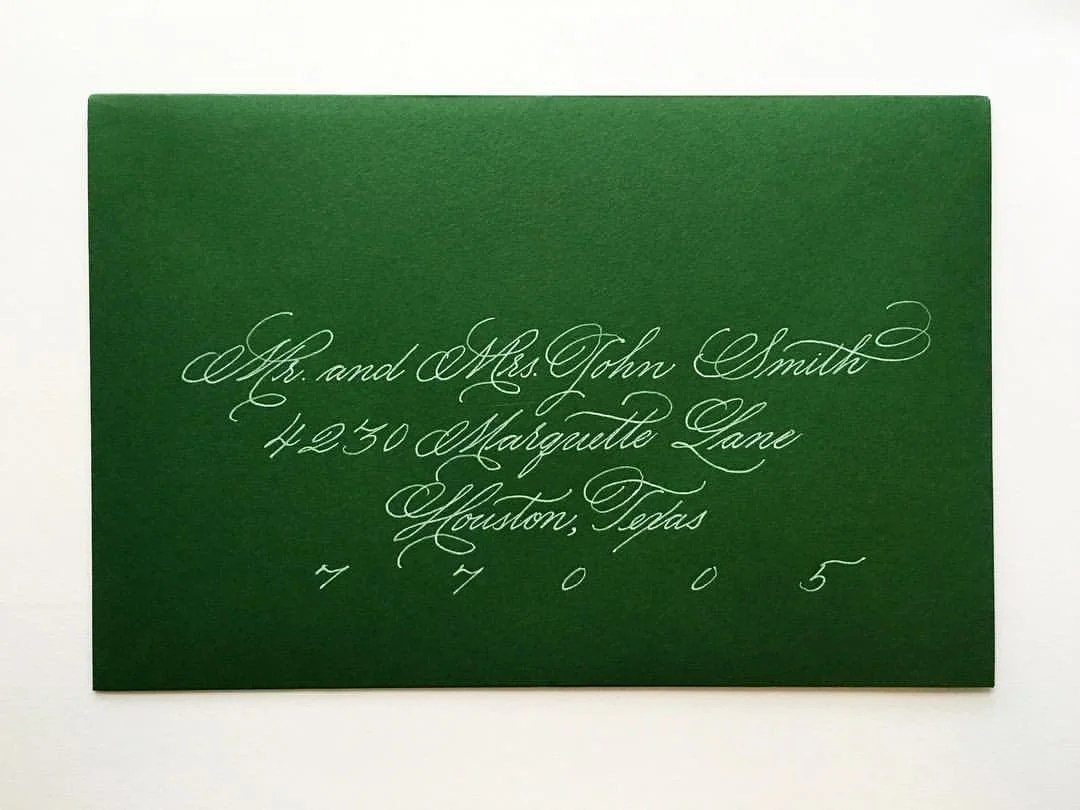 Mr. and Mrs. John Smith
4230 Marquette Lane
Houston, Texas
7 7 0 0 5